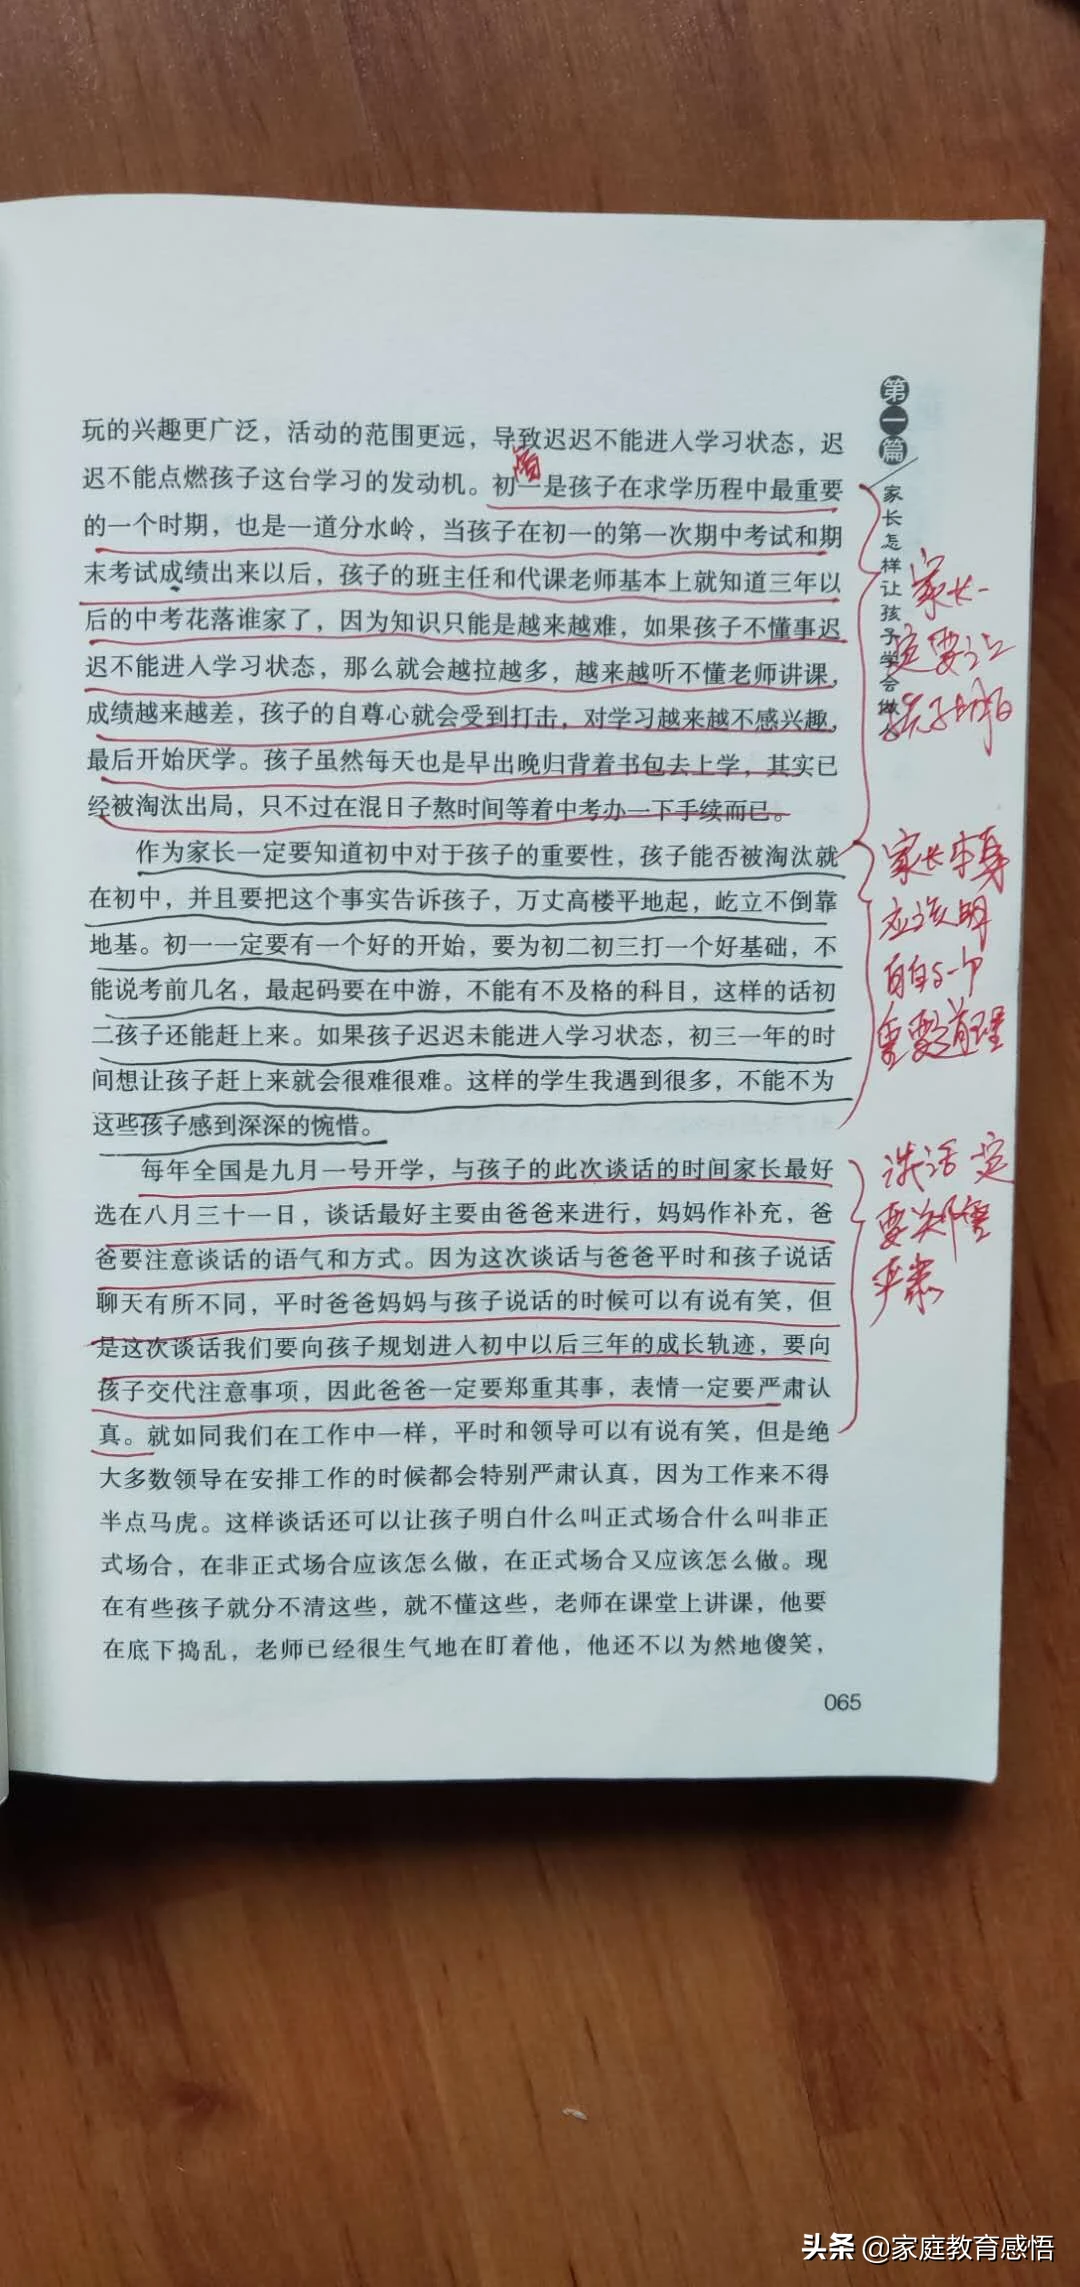 玩的兴趣更广泛，活动的范围更远，导致迟迟不能进入学习状态，迟
迟不能点燃孩子这台学习的发动机。初一是孩子在求学历程中最重要
的一个时期，也是一道分水岭，当孩子在初一的第一次期中考试和期
末考试成绩出来以后，孩子的班主任和代课老师基本上就知道三年以
后的中考花落谁家了，因为知识只能是越来越难，如果孩子不懂事迟
迟不能进入学习状态，那么就会越拉越多，越来越听不懂老师讲课，
成绩越来越差，孩子的自尊心就会受到打击，对学习越来越不感兴趣，
最后开始厌学。孩子虽然每天也是早出晚归背着书包去上学，其实已
经被淘汰出局，只不过在混日子熬时间等着中考办一下手续而已。
作为家长一定要知道初中对于孩子的重要性，孩子能否被淘汰就
在初中，并且要把这个事实告诉孩子，万丈高楼平地起，屹立不倒靠
地基。初一一定要有一个好的开始，要为初二初三打一个好基础，不
能说考前几名，最起码要在中游，不能有不及格的科目，这样的话初
二孩子还能赶上来。如果孩子迟迟未能进入学习状态，初三一年的时
间想让孩子赶上来就会很难很难。这样的学生我遇到很多，不能不为
这些孩子感到深深的惋惜。
每年全国是九月一号开学，与孩子的此次谈话的时间家长最好
选在八月三十一日，谈话最好主要由爸爸来进行，妈妈作补充，爸
爸要注意谈话的语气和方式。因为这次谈话与爸爸平时和孩子说话
聊天有所不同，平时爸爸妈妈与孩子说话的时候可以有说有笑，但
是这次谈话我们要向孩子规划进入初中以后三年的成长轨迹，要向
孩子交代注意事项，因此爸爸一定要郑重其事，表情一定要严肃认
真。就如同我们在工作中一样，平时和领导可以有说有笑，但是绝
大多数领导在安排工作的时候都会特别严肃认真，因为工作来不得
半点马虎。这样谈话还可以让孩子明白什么叫正式场合什么叫非正
式场合，在非正式场合应该怎么做，在正式场合又应该怎么做。现
在有些孩子就分不清这些，就不懂这些，老师在课堂上讲课，他要
在底下捣乱，老师已经很生气地在盯着他，他还不以为然地傻笑，
065
第一篇
家长怎样让孩子学会做人
家长一
定要让
孩子明白
家长本身
应该明
白这一个
重要道理
谈话一定
要郑重
严肃
头条 @家庭教育感悟